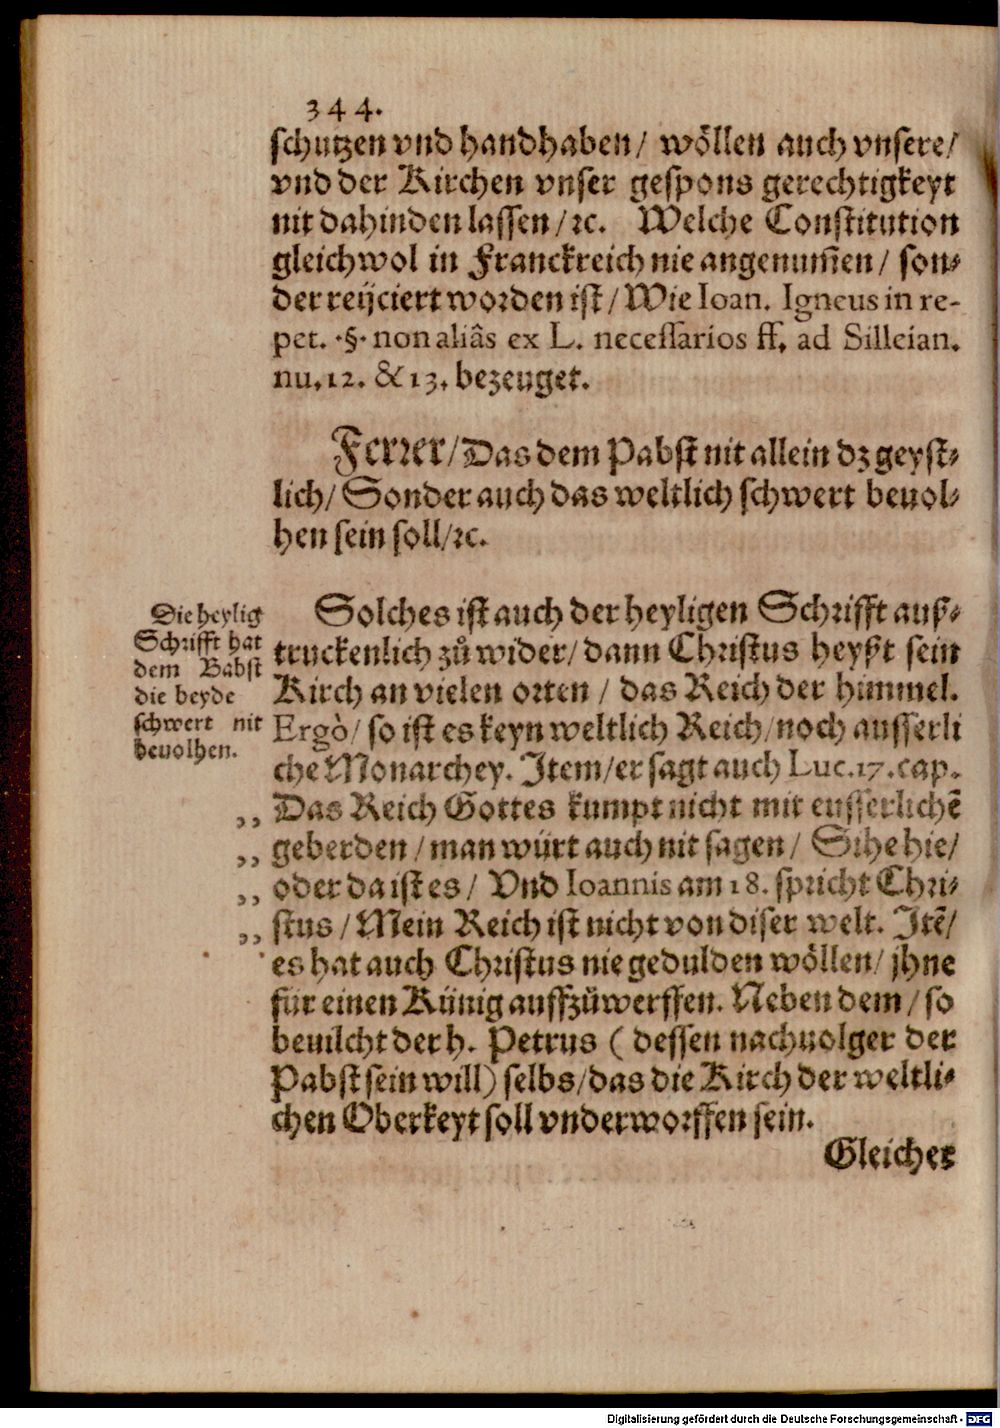 344.
schutzen vnd handhaben/ wöllen auch vnsere/
vnd der Kirchen vnser gespons gerechtigkeyt
nit dahinden lassen/ꝛc. Welche Constitution
gleichwol in Franckreich nie angenum̃en/ son-
der reijciert worden ist/ Wie Ioan. Igneus in re-
pet. §. non aliâs ex L. necessarios ff. ad Silleian.
nu. 12. & 13. bezeuget.
Ferrer/ Das dem Pabst nit allein dz geyst-
lich/ Sonder auch das weltlich schwert beuol-
hen sein soll/ꝛc.
Die heylig
Schrifft hat
dem Babst
die beyde
schwert nit
beuolhen.
Solches ist auch der heyligen Schrifft auß-
truckenlich zů wider/ dann Christus heyßt sein
Kirch an vielen orten/ das Reich der himmel.
Ergò/ so ist es keyn weltlich Reich/ noch ausserli
che Monarchey. Item/ er sagt auch Luc. 17. cap.
,, Das Reich Gottes kumpt nicht mit eusserlichẽ
,, geberden/ man würt auch nit sagen/ Sihe hie/
,, oder da ist es/ Vnd Ioannis am 18. spricht Chri-
,, stus/ Mein Reich ist nicht von diser welt. Itẽ/
es hat auch Christus nie gedulden wöllen/ jhne
für einen Künig auffzůwerffen. Neben dem/ so
beuilcht der h. Petrus (dessen nachuolger der
Pabst sein will) selbs/ das die Kirch der weltli-
chen Oberkeyt soll vnderworffen sein.
Gleicher
Digitalisierung gefördert durch die Deutsche Forschungsgemeinschaft - DFG